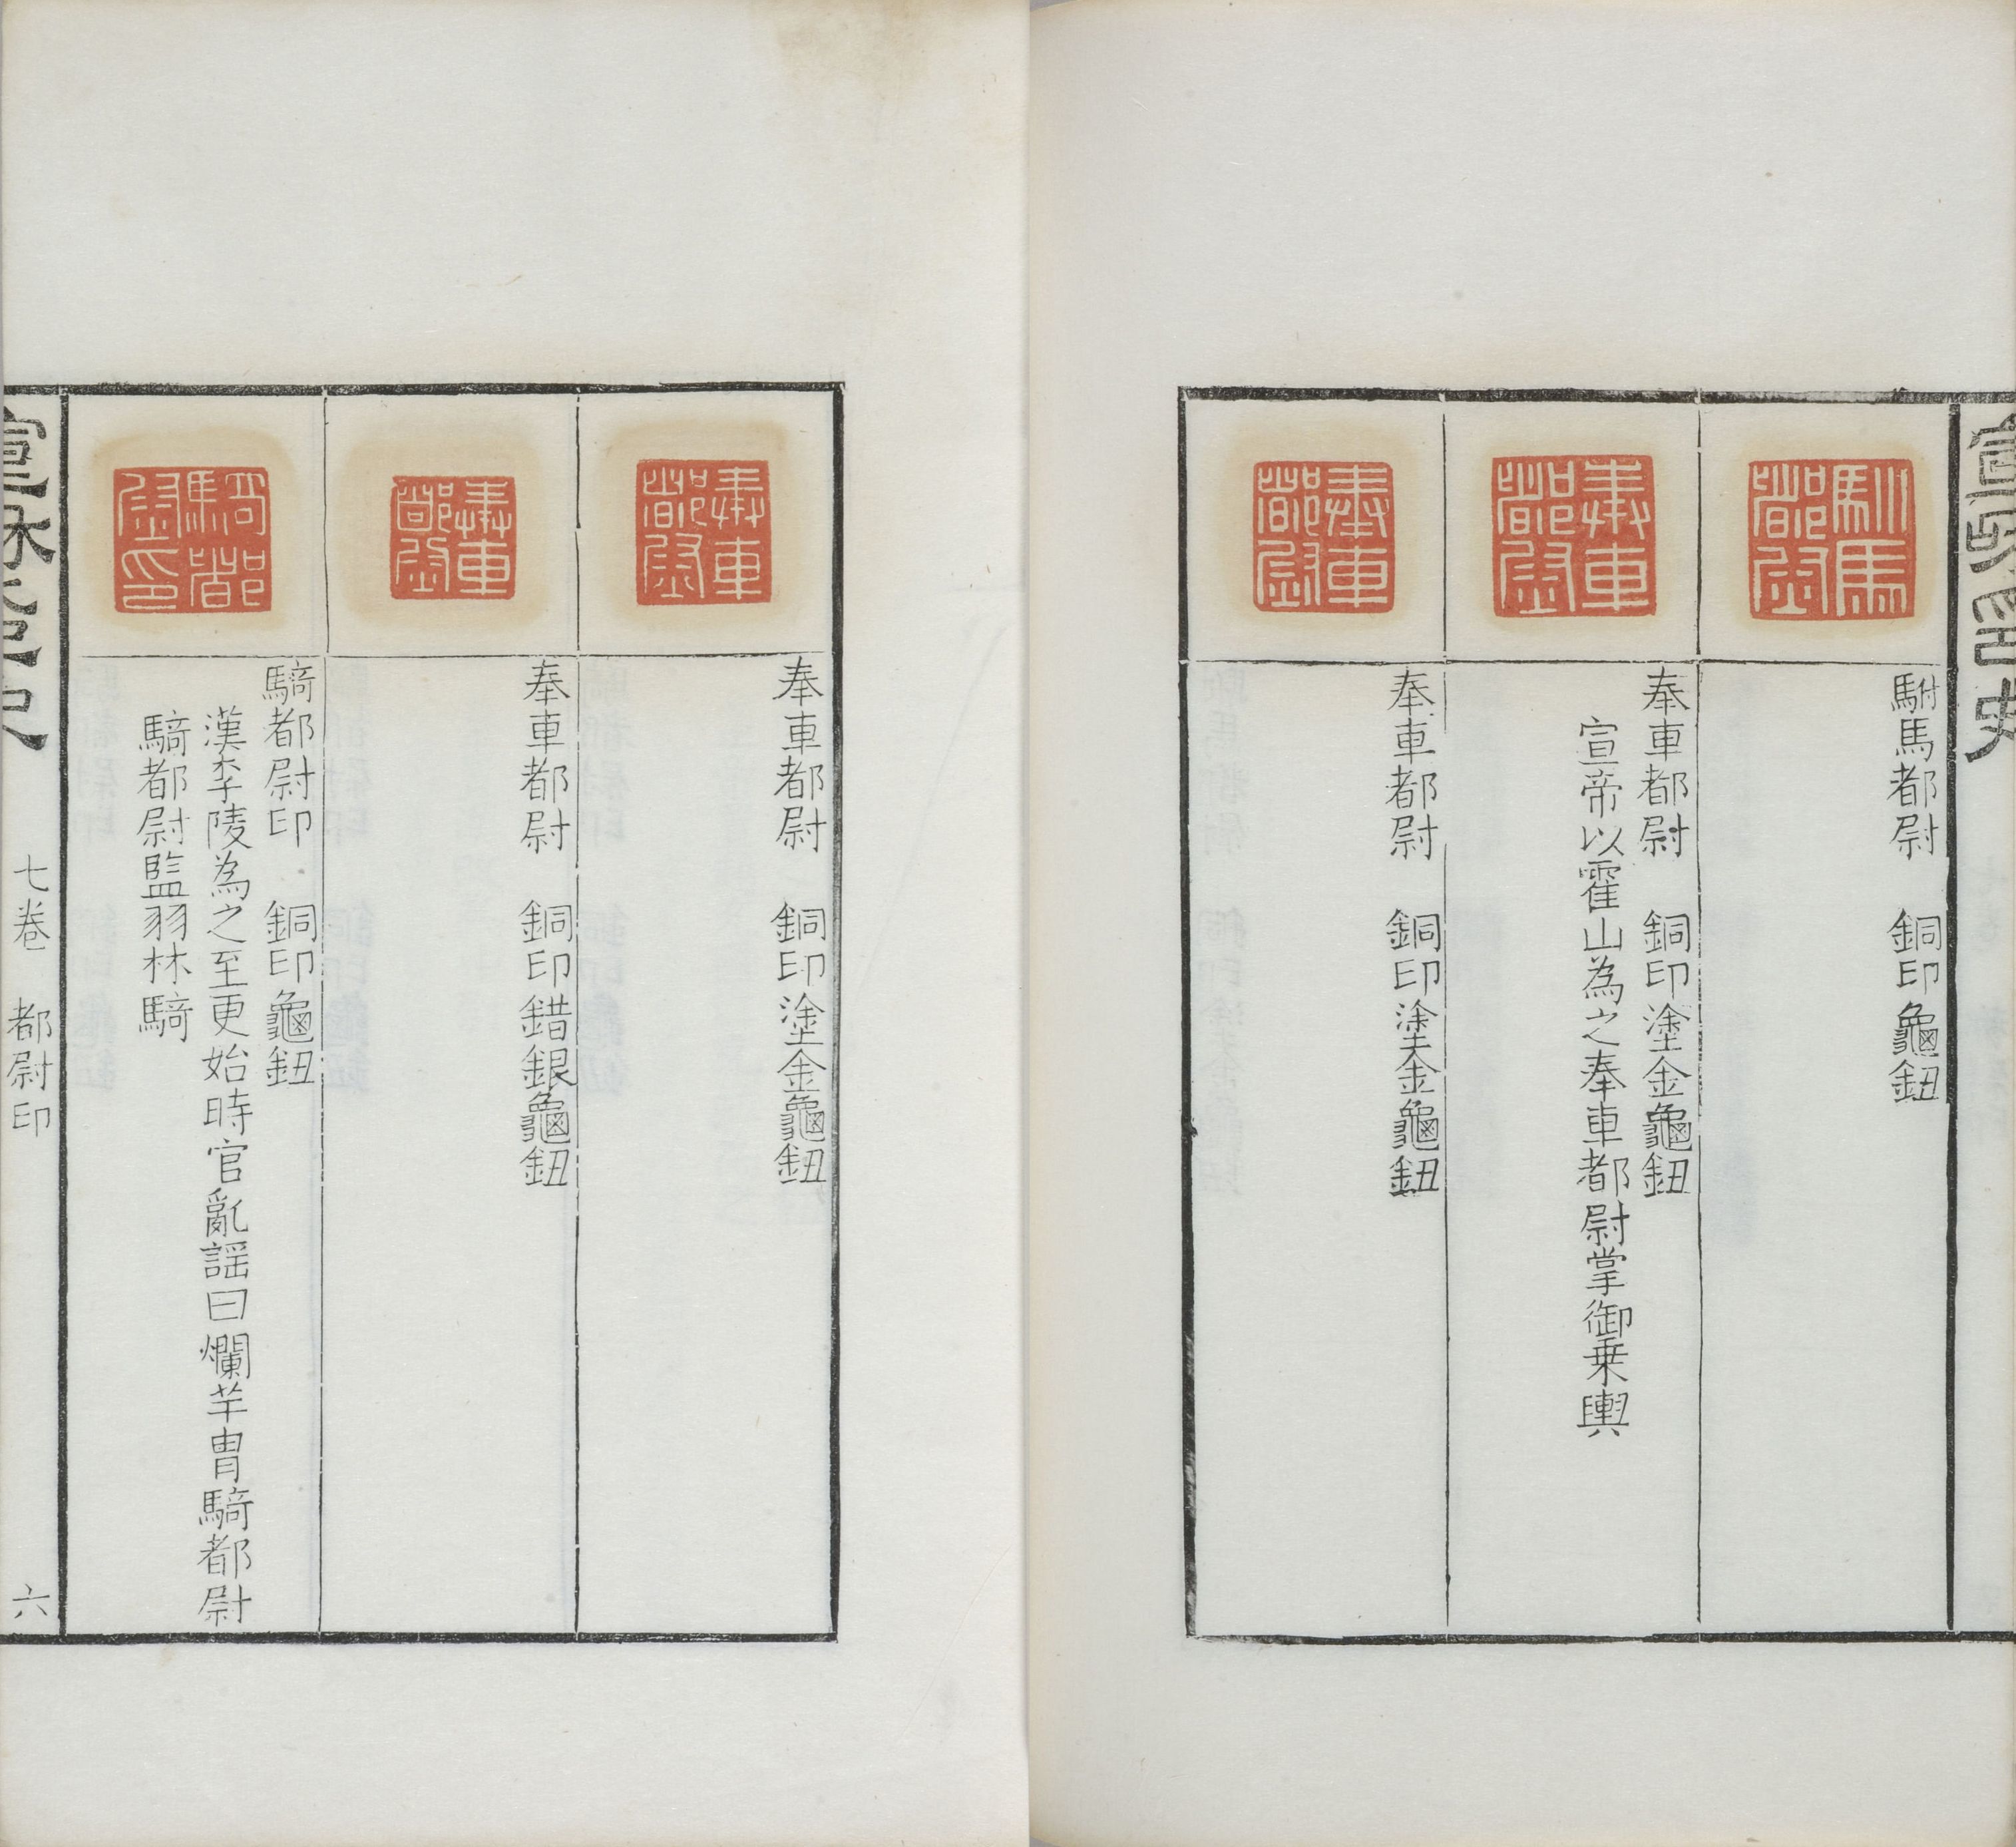 宣和印史
駙馬都尉
駙馬都尉　銅印龜鈕
奉車都尉
奉車都尉　銅印塗金龜鈕
宣帝以霍山為之奉車都尉掌御乗輿
奉車都尉
奉車都尉　銅印塗金龜鈕
奉車都尉
奉車都尉　銅印塗金龜鈕
奉車都尉
奉車都尉　銅印錯銀龜鈕
騎都尉印
騎都尉印　銅印龜鈕
漢李陵為之至更始時官亂謡曰爛羊胃騎都尉
騎都尉監羽林騎
宣和印史　七卷　都尉印　六